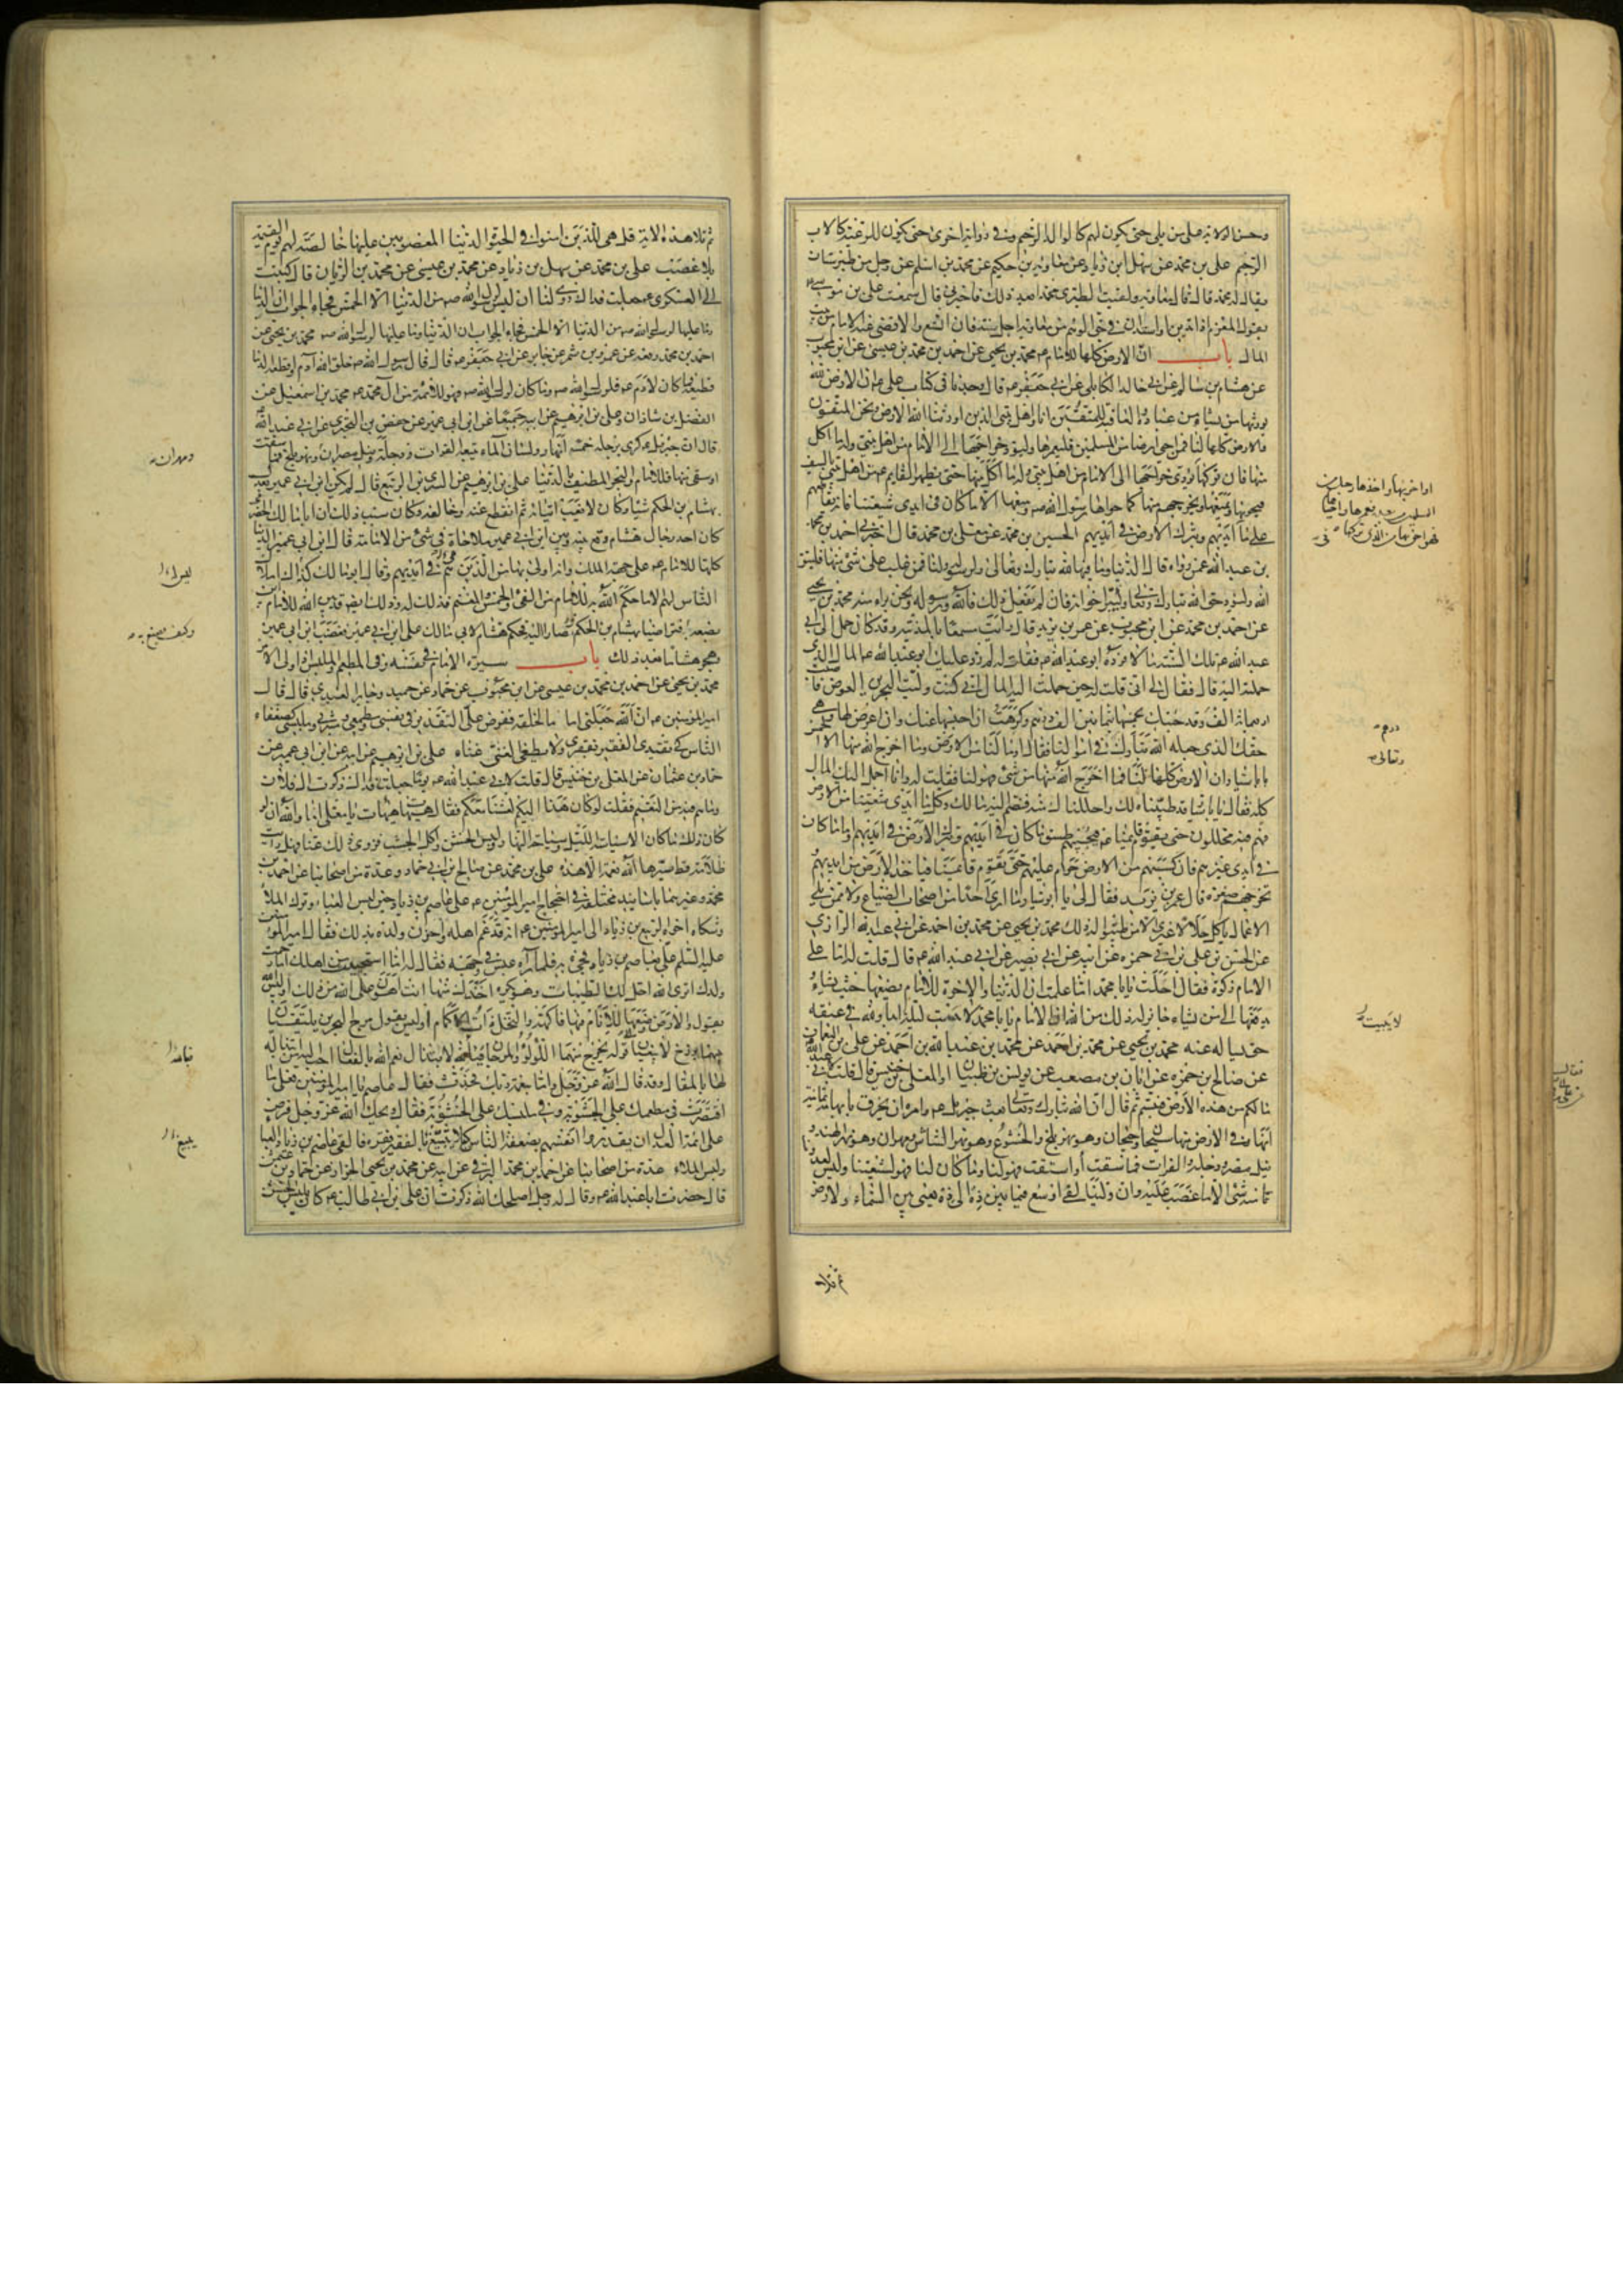 وحسن الولاية على من يلي حتى يكون لهم كالوالد الرحيم وفي رواية اخرى حتى يكون للرعية كالاب
الرحيم علي بن محمد عن سهل ابن زياد عن معاوية بن حكيم عن محمد بن اسلم عن رجل من طبرستان
يقال له محمد قال قال معاوية ولقيت الطبري محمدا بعد ذلك فاخبرني قال سمعت علي بن موسى ع
يقول المغرم اذا تدين او استدان في حق الوهم من معاوية اجل سنة فان اتسع والا قضى عنه الامام من بيت
المال باب ان الارض كلها للامام ع محمد بن يحيى عن احمد بن محمد بن عيسى عن ابن محبوب
عن هشام بن سالم عن ابي خالد الكابلي عن ابي جعفر ع قال وجدنا في كتاب علي ع ان الارض لله
يورثها من يشاء من عباده والعاقبة للمتقين انا واهل بيتي الذين اورثنا الله الارض ونحن المتقون
والارض كلها لنا فمن احيى ارضا من المسلمين فليعمرها وليؤد خراجها الى الامام من اهل بيتي وله ما اكل
منها فان تركها يؤدي خراجها الى الامام من اهل بيتي وله ما اكل منها حتى يظهر القايم ع من اهل بيتي بالسيف
فيحويها ويمنعها ويخرجهم منها كما حواها رسول الله ص ومنعها الا ما كان في ايدي شيعتنا فانه يقاطعهم
على ما في ايديهم ويترك الارض في ايديهم الحسين بن محمد عن معلى بن محمد قال اخبرني احمد بن محمد
بن عبد الله عمن رواه قال الدنيا وما فيها لله تبارك وتعالى ولرسوله ولنا فمن غلب على شئ منها فليتق
الله وليؤد حق الله تبارك وتعالى وليبر اخوانه فان لم يفعل ذلك فالله ورسوله ونحن براء منه محمد بن يحيى
عن احمد بن محمد عن ابن محبوب عن عمر بن يزيد قال رايت مسمعا بالمدينة وقد كان حمل الى ابي
عبد الله ع تلك السنة مالا فرده ابو عبد الله ع فقلت له لم رد عليك ابو عبد الله ع المال الذي
حملته اليه قال فقال لي اني قلت له حين حملت اليه المال اني كنت وليت البحرين الغوص فاصبت
اربعمائة الف وقد جئتك بخمسها بثمانين الف درهم وكرهت ان احبسها عنك وان اعرض لها وهي
حقك الذي جعله الله تبارك في اموالنا فقال او ما لنا من الارض وما اخرج الله منها الا الخمس
يا با سيار ان الارض كلها لنا فما اخرج الله منها من شئ فهو لنا فقلت له وانا احمل اليك المال
كله فقال يا با سيار قد طيبناه لك واحللناك منه فضم اليك مالك وكل ما في ايدي شيعتنا من الارض
فهم فيه محللون حتى يقوم قائمنا ع فيجبيهم طسق ما كان في ايديهم ويترك الارض في ايديهم واما ما كان
في ايدي غيرهم فان كسبهم من الارض حرام عليهم حتى يقوم قائمنا فياخذ الارض من ايديهم
يخرجهم صغرة قال عمر بن يزيد فقال لي ابو سيار ما ارى احدا من اصحاب الضياع ولا ممن يلي
الاعمال ياكل حلالا غيري الا من طيبوا له ذلك محمد بن يحيى عن محمد بن احمد عن ابي عبد الله الرازي
عن الحسن بن علي بن ابي حمزه عن ابيه عن ابي بصير عن ابي عبد الله ع قال قلت له اما على
الامام زكوة فقال احلت يا با محمد اما علمت ان الدنيا والاخرة للامام يضعها حيث يشاء
يدفعها الى من يشاء جائز له ذلك من الله ان الامام يا با محمد لا يبيت ليلة ابدا ولله في عنقه
حق يساله عنه محمد بن يحيى عن محمد بن احمد عن محمد بن عبد الله بن احمد عن علي بن النعمان
عن صالح بن حمزه عن ابان بن مصعب عن يونس بن ظبيان او المعلى بن خنيس قال قلت لابي عبد الله
مالكم من هذه الارض فتبسم ثم قال ان الله تبارك وتعالى بعث جبرئل ع وامره ان يخرق بابهامه ثمانية
انهار في الارض منها سيحان وجيحان وهو نهر بلخ والخشوع وهو نهر الشاش ومهران وهو نهر الهند و
نيل مصر ودجلة والفرات فما سقت او استقت فهو لنا وما كان لنا فهو لشيعتنا وليس لعدونا
منه شئ الا ما غصب عليه وان ولينا لفي اوسع فيما بين ذه الى ذه يعني بين السماء والارض
ثم تلا
درهم
وتعالى
لا يبيت
ثم تلا هذه الاية قل هي للذين امنوا في الحيوة الدنيا المغصوبين عليها خالصة لهم يوم القيمة
بلا غصب علي بن محمد عن سهل بن زياد عن محمد بن عيسى عن محمد بن الريان قال كتبت
الى العسكري ع جعلت فداك روي لنا ان ليس لرسول الله ص من الدنيا الا الخمس فجاء الجواب ان الدنيا
وما عليها لرسول الله ص من الدنيا الا الخمس فجاء الجواب ان الدنيا وما عليها لرسول الله ص محمد بن يحيى عن
احمد بن محمد رفعه عن عمرو بن شمر عن جابر عن ابي جعفر ع قال قال رسول الله ص خلق الله آدم واقطعه الدنيا
قطيعة فما كان لآدم ع فلرسول الله ص وما كان لرسول الله ص فهو للائمة من آل محمد ع محمد بن اسمعيل عن
الفضل بن شاذان وعلي بن ابرهيم عن ابيه جميعا عن ابن ابي عمير عن حفص بن البختري عن ابي عبد الله ع
قال ان جبرئيل ع كرى برجله خمسة انهار ولسان الماء يتبعه الفرات ودجلة ونيل مصر ونهر بلخ فما سقت
او سقي منها فللامام والبحر المطيف بالدنيا علي بن ابرهيم عن السري بن الربيع قال لم يكن ابن ابي عمير يعدل
بهشام بن الحكم شيئا وكان لا يغب اتيانه ثم انقطع عنه وخالفه وكان سبب ذلك ان ابا مالك الحضرمي
كان احد رجال هشام وقع بينه وبين ابن ابي عمير ملاحاة في شئ من الامامة قال ابن ابي عمير الدنيا
كلها للامام ع على جهة الملك وانه اولى بها من الذين هي في ايديهم وقال ابو مالك كذلك املاك
الناس لهم الا ما حكم الله به للامام من الفئ والخمس والمغنم فذلك له وذلك ايضا قد بين الله للامام اين
يضعه فتراضيا بهشام بن الحكم وصارا اليه فحكم هشام لابي مالك على ابن ابي عمير فغضب ابن ابي عمير
وهجر هشاما بعد ذلك باب سيرة الامام في نفسه وفي المطعم والملبس اذا ولي الامر
محمد بن يحيى عن احمد بن محمد بن عيسى عن ابن محبوب عن حماد عن حميد وجابر العبدي قال قال
امير المؤمنين ع ان الله جعلني اماما لخلقه ففرض علي التقدير في نفسي ومطعمي ومشربي وملبسي كضعفاء
الناس كي يقتدي الفقير بفقري ولا يطغي الغني غناه علي بن ابرهيم عن ابيه عن ابن ابي عمير عن
حماد بن عثمان عن المعلى بن خنيس قال قلت لابي عبد الله ع يوما جعلت فداك ذكرت ال فلان
وما هم فيه من النعيم فقلت لو كان هذا اليكم لعشنا معكم فقال هيهات يا معلى اما والله ان لو
كان ذلك ما كان الا سياسة الليل وسياحة النهار ولبس الخشن واكل الجشب فزوي ذلك عنا فهل رايت
ظلامة قط صيرها الله نعمة الا هذه علي بن محمد عن صالح بن ابي حماد وعدة من اصحابنا عن احمد بن
محمد وغيرهما باسانيد مختلفة في احتجاج امير المؤمنين ع على عاصم بن زياد حين لبس العباء وترك الملاء
وشكاه اخوه الربيع بن زياد الى امير المؤمنين ع انه قد غم اهله واحزن ولده بذلك فقال امير المؤمنين
عليه السلم علي بعاصم بن زياد فجئ به فلما رآه عبس في وجهه فقال له اما استحييت من اهلك اما رحمت
ولدك اترى الله احل لك الطيبات وهو يكره اخذك منها انت اهون على الله من ذلك او ليس الله
يقول والارض وضعها للانام فيها فاكهة والنخل ذات الاكمام اوليس يقول مرج البحرين يلتقيان
بينهما برزخ لا يبغيان الى قوله يخرج منهما اللؤلؤ والمرجان فبالله لابتذال نعم الله بالفعال احب اليه من ابتذاله
لها بالمقال وقد قال الله عز وجل واما بنعمة ربك فحدث فقال عاصم يا امير المؤمنين فعلى ما
اقتصرت في مطعمك على الجشوبة وفي ملبسك على الخشونة فقال ويحك ان الله عز وجل فرض
على ائمة العدل ان يقدروا انفسهم بضعفة الناس كيلا يتبيغ بالفقير فقره فالقى عاصم بن زياد العباء
ولبس الملاء عدة من اصحابنا عن احمد بن محمد البرقي عن ابيه عن محمد بن يحيى الخزاز عن حماد بن عثمان
قال حضرت ابا عبد الله ع وقال له رجل اصلحك الله ذكرت ان علي بن ابي طالب ع كان يلبس الخشن
ومهران